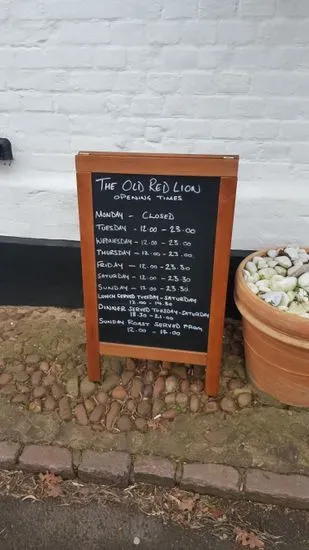 The Old Red Lion
Opening Times
Monday - Closed
Tuesday - 12.00 - 23.00
Wednesday - 12.00 - 23.00
Thursday - 12.00 - 23.00
Friday - 12.00 - 23.30
Saturday - 12.00 - 23.30
Sunday - 12.00 - 23.30
Lunch served Tuesday - Saturday
12.00 - 14.00
Dinner served Tuesday - Saturday
18.30 - 21.00
Sunday Roast served from
12.00 - 17.00